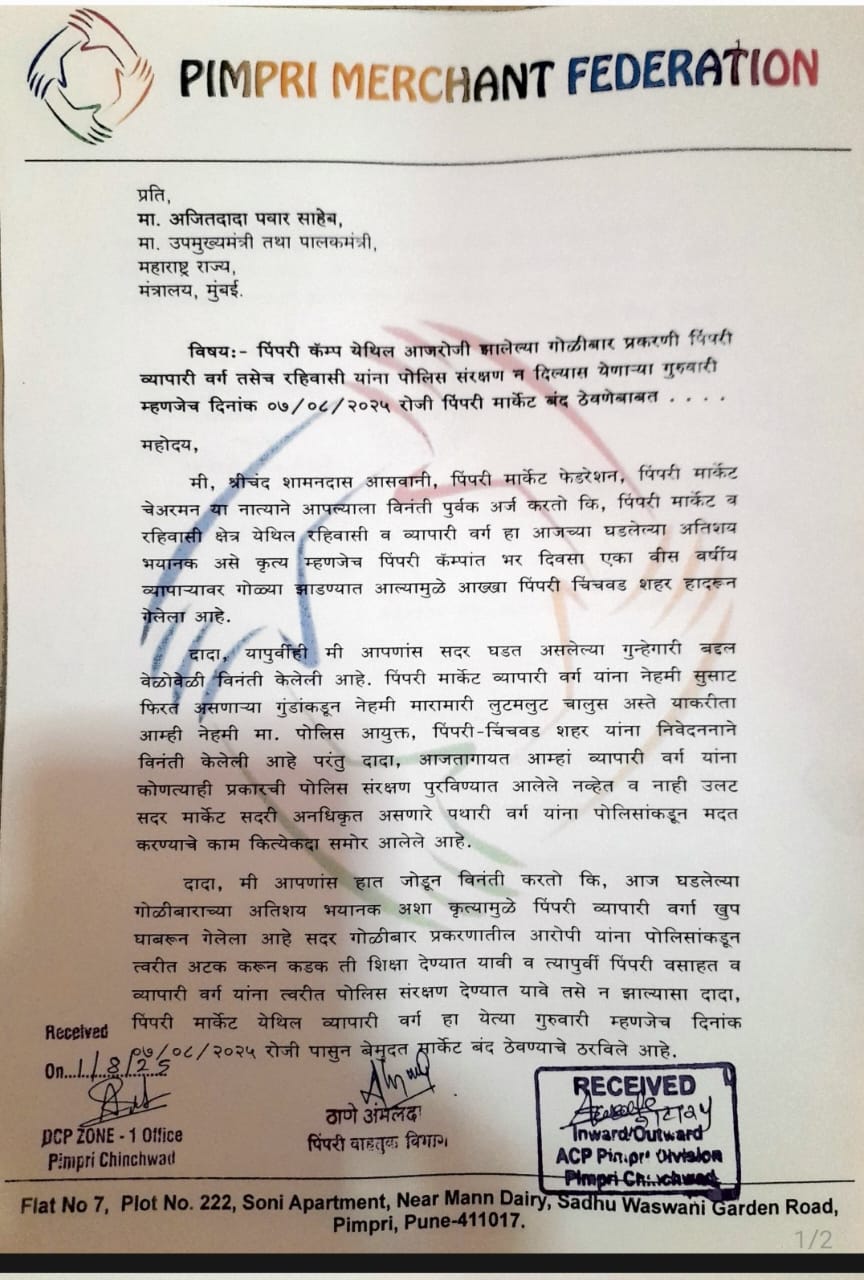 PIMPRI MERCHANT FEDERATION
प्रति,
मा. अजितदादा पवार साहेब,
मा. उपमुख्यमंत्री तथा पालकमंत्री,
महाराष्ट्र राज्य,
मंत्रालय, मुंबई.
विषय:- पिंपरी कॅम्प येथिल आजरोजी झालेल्या गोळीबार प्रकरणी पिंपरी
व्यापारी वर्ग तसेच रहिवासी यांना पोलिस संरक्षण न दिल्यास येणाऱ्या गुरुवारी
म्हणजेच दिनांक ०७/०८/२०२५ रोजी पिंपरी मार्केट बंद ठेवणेबाबत . . . .
महोदय,
मी, श्रीचंद शामनदास आसवानी, पिंपरी मार्केट फेडरेशन, पिंपरी मार्केट
चेअरमन या नात्याने आपल्याला विनंती पुर्वक अर्ज करतो कि, पिंपरी मार्केट व
रहिवासी क्षेत्र येथिल रहिवासी व व्यापारी वर्ग हा आजच्या घडलेल्या अतिशय
भयानक असे कृत्य म्हणजेच पिंपरी कॅम्पांत भर दिवसा एका वीस वर्षीय
व्यापाऱ्यावर गोळ्या झाडण्यात आल्यामुळे आख्खा पिंपरी चिंचवड शहर हादरून
गेलेला आहे.
दादा, यापुर्वीही मी आपणांस सदर घडत असलेल्या गुन्हेगारी बद्दल
वेळोवेळी विनंती केलेली आहे. पिंपरी मार्केट व्यापारी वर्ग यांना नेहमी सुसाट
फिरत असणाऱ्या गुंडांकडून नेहमी मारामारी लुटमलुट चालुस अस्ते याकरीता
आम्ही नेहमी मा. पोलिस आयुक्त, पिंपरी-चिंचवड शहर यांना निवेदननाने
विनंती केलेली आहे परंतु दादा, आजतागायत आम्हां व्यापारी वर्ग यांना
कोणत्याही प्रकारची पोलिस संरक्षण पुरविण्यात आलेले नव्हेत व नाही उलट
सदर मार्केट सदरी अनधिकृत असणारे पथारी वर्ग यांना पोलिसांकडून मदत
करण्याचे काम कित्येकदा समोर आलेले आहे.
दादा, मी आपणांस हात जोडून विनंती करतो कि, आज घडलेल्या
गोळीबाराच्या अतिशय भयानक अशा कृत्यामुळे पिंपरी व्यापारी वर्गा खुप
घाबरून गेलेला आहे सदर गोळीबार प्रकरणातील आरोपी यांना पोलिसांकडून
त्वरीत अटक करून कडक ती शिक्षा देण्यात यावी व त्यापुर्वी पिंपरी वसाहत व
व्यापारी वर्ग यांना त्वरीत पोलिस संरक्षण देण्यात यावे तसे न झाल्यासा दादा,
पिंपरी मार्केट येथिल व्यापारी वर्ग हा येत्या गुरुवारी म्हणजेच दिनांक
०७/०८/२०२५ रोजी पासुन बेमुदत मार्केट बंद ठेवण्याचे ठरविले आहे.
Received
On...1/8/25
DCP ZONE - 1 Office
Pimpri Chinchwad
ठाणे अंमलदा
पिंपरी वाहतुक विभाग
RECEIVED
Inward/Outward
ACP Pimpri Division
Pimpri Chinchwad
Flat No 7, Plot No. 222, Soni Apartment, Near Mann Dairy, Sadhu Waswani Garden Road,
Pimpri, Pune-411017.
1/2